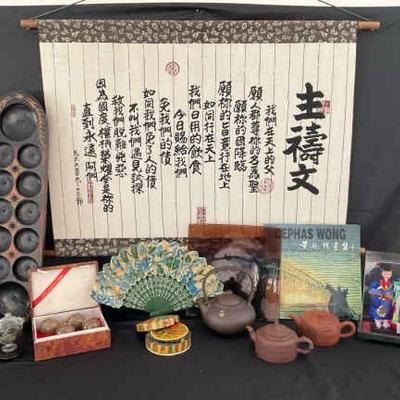 主禱文
我們在天上的父
願人都尊祢的名為聖
願祢的國降臨
願祢的旨意行在地上
如同行在天上
我們日用的飲食
今日賜給我們
免我們的債
如同我們免了人的債
不叫我們遇見試探
救我們脫離兇惡
因為國度權柄榮耀全是祢的
直到永遠 阿們
CEPHAS WONG